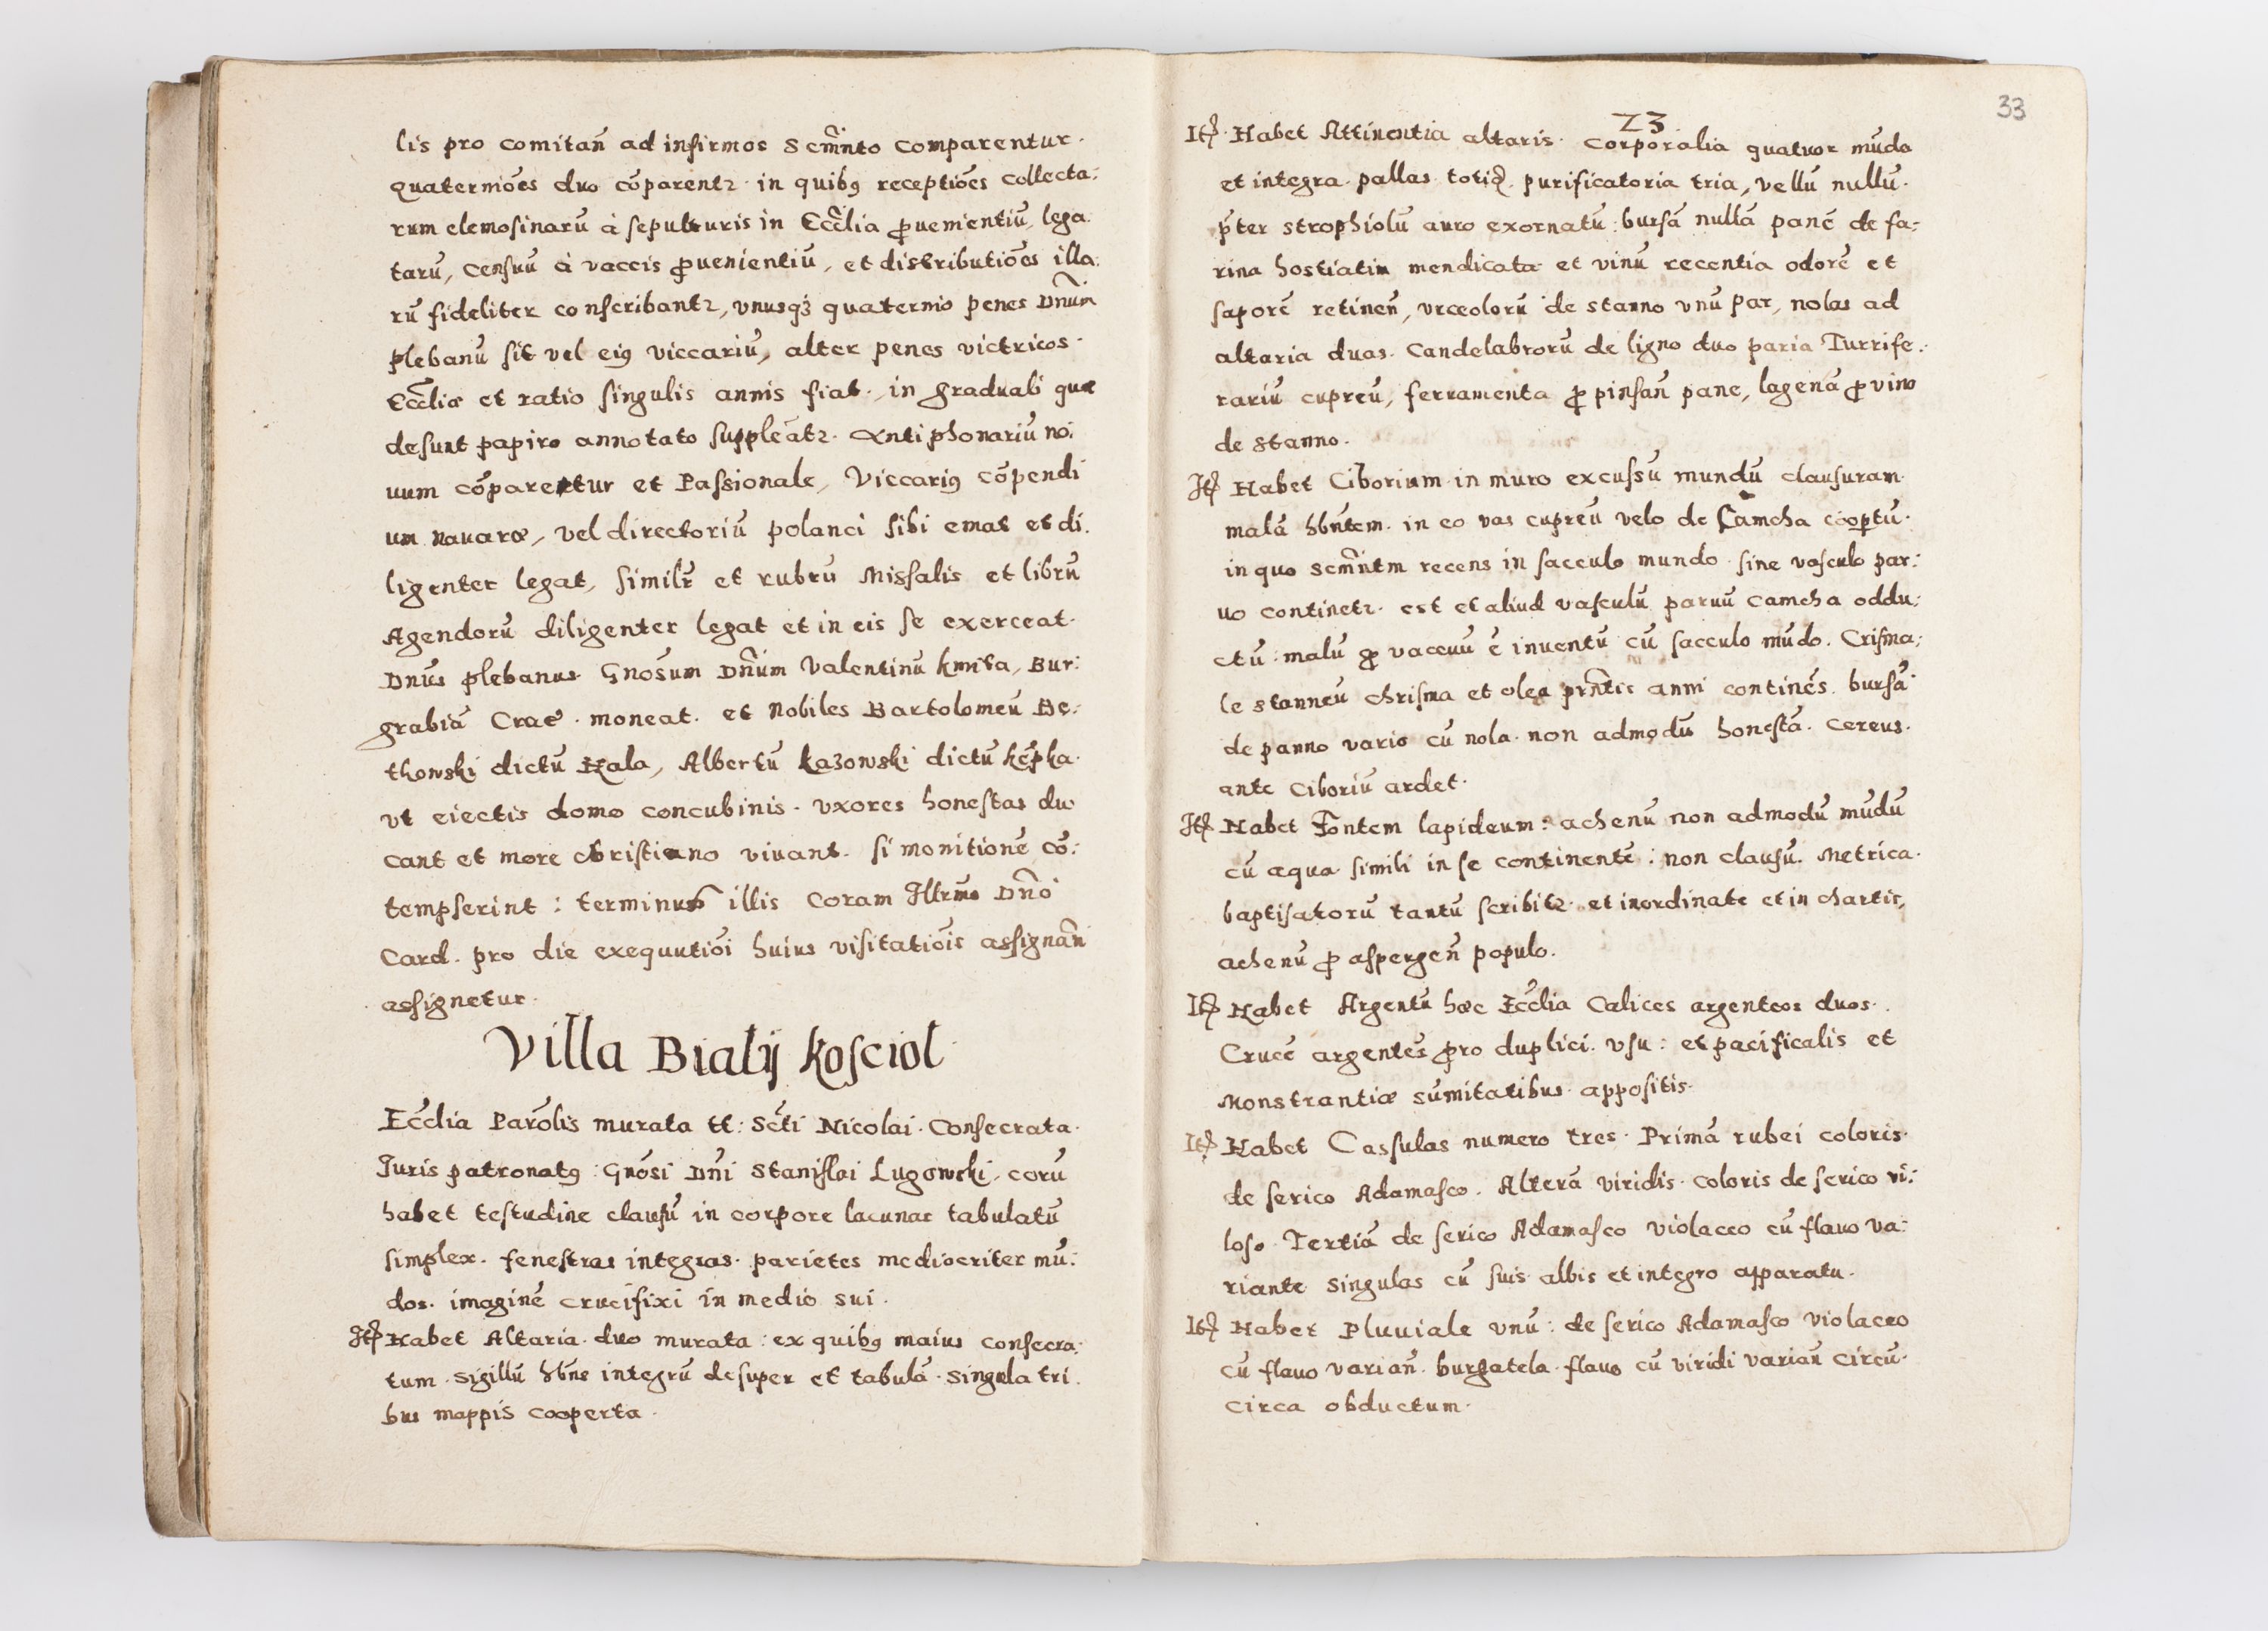 lis pro comitañ ad infirmos Scm̃nto comparentur.
Quaterniōes duo cōparentr in quibꝫ receptiōes collecta:
rum elemosinarū à sepulturis in Ecc̃lia ꝓuenientiū, lega
tarū, censuū à vaccis ꝓuenientiū, et distributiōes illa:
rū fideliter conscribantr, vnusqꝫ quaternio penes Dnūm
plebanū sit vel eiꝰ viccariū, alter penes victricos
Ecc̃liæ et ratio singulis annis fiat, in graduali quæ
desunt papiro annotato suppleātr. Antiphonariū no:
uum cōparetur et Passionale, Viccariꝰ cōpendi
um Nauaræ, vel directoriū polanci sibi emat et di.
ligenter legat, similr̃ et rubrū Missalis et librū
Agendorū diligenter legat et in eis se exerceat.
Dnūs plebanus Gnōsum Dnūm Valentinū Kmita, Bur:
grabiā Crac̃. moneat. et Nobiles Bartolomeū Be:
thowski dictū Hala, Albertū Kazowski dictū Kępka
vt eiectis domo concubinis. vxores honestas du
cant et more christiano viuant. si monitionē cō:
tempserint: terminus illis Coram Illrm̃o Dnō
Card. pro die exequutiōi huius visitatiōis assignañ
assignetur.
Villa Bialÿ Kosciol
Ecc̃lia Parōlis murata tt: Scti Nicolai. Consecrata.
Iuris patronatꝰ: Gnōsi Dñi Stanislai Lugowski, corū
habet testudine clausū in corpore lacunar tabulatū
simplex. fenestras integras. parietes mediocriter mū:
dos. imaginē crucifixi in medio sui.
Itꝫ Habet Altaria duo murata: ex quibꝰ maius consecra:
tum sigillū hbñs integrū desuper et tabulā. singula tri.
bus mappis cooperta.
33
Z3
Itꝫ Habet Attinentia altaris. Corporalia quatuor mūda
et integra. pallas totiꝗ. purificatoria tria, vellū nullū.
p̃ter strophiolū auro exornatū: bursā nullā panē de fa:
rina hostiatim mendicata et vinū recentia odorē et
saporē retineñ, vrceolorū de stanno vnū par, nolas ad
altaria duas. Candelabrorū de ligno duo paria Turrife:
rariū cupreū, ferramenta ꝓ pinsañ pane, lagenā ꝓ vino
de stanno.
Itꝫ Habet Ciborium in muro excussū mundū clausuram
malā hbñtem. in eo vas cupreū velo de Camcha coopertū.
in quo Scm̃ntm recens in sacculo mundo sine vasculo par:
uo continetr. est et aliud vasculū paruū camcha oddu:
ctū: malū ꝙ vacuuū ē inuentū cū sacculo mūdo. Crisma:
le stanneū chrisma et olea prñtis anni continēs. bursā
de panno vario cū nola. non admodū honestā. Cereus.
ante Ciboriū ardet.
Itꝫ Habet Fontem lapideum: achenū non admodū mūdū
cū aqua simili in se continentē: non clausū. Metrica.
baptisatorū tantū scribitr. et inordinate et in chartis,
achenū ꝓ aspergeñ populo.
Itꝫ Habet Argentū hæc Ecc̃lia Calices argenteos duos.
Crucē argenteā pro duplici. vsu: et pacificalis et
Monstrantiæ sūmitatibus appositis.
Itꝫ Habet Cassulas numero tres. Primā rubei coloris.
de serico Adamasco. Alterā viridis. coloris de serico vi:
loso. Tertiā de serico Adamasco violaceo cū flauo va:
riante singulas cū suis albis et integro apparatu.
Itꝫ Habet Pluuiale vnū: de serico Adamasco violaceo
cū flauo variañ. burgatela flauo cū viridi variañ circū.
circa obductum.